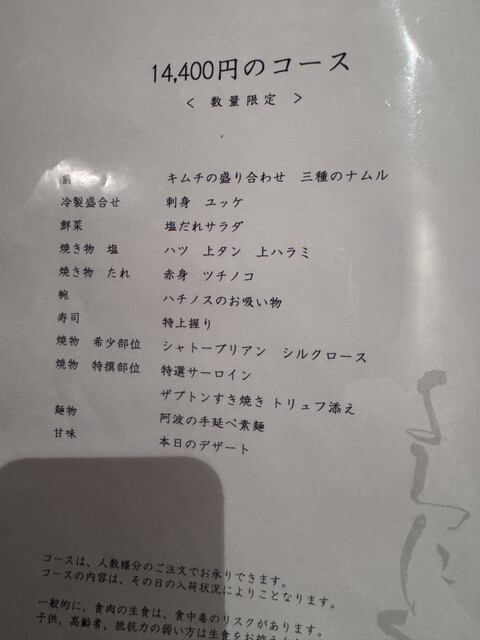 14,400円のコース
＜ 数量限定 ＞
前 キムチの盛り合わせ 三種のナムル
冷製盛合せ 刺身 ユッケ
鮮菜 塩だれサラダ
焼き物 塩 ハツ 上タン 上ハラミ
焼き物 たれ 赤身 ツチノコ
椀 ハチノスのお吸い物
寿司 特上握り
焼物 希少部位 シャトーブリアン シルクロース
焼物 特撰部位 特選サーロイン
ザブトンすき焼き トリュフ添え
麺物 阿波の手延べ素麺
甘味 本日のデザート
コースは、人数様分のご注文でお承りできます。
コースの内容は、その日の入荷状況によりことなります。
一般的に、食肉の生食は、食中毒のリスクがあります。
子供、高齢者、抵抗力の弱い方は生食をお控え